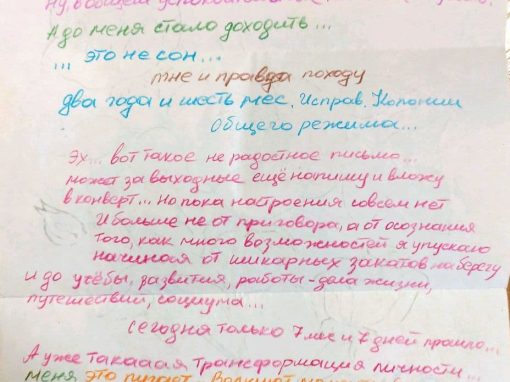 Ну, в общем
А до меня стало доходить...
... это не сон...
мне и правда походу
два года и шесть мес. Исправ. Колонии
Общего режима...
Эх... вот такое не радостное письмо...
может за выходные ещё напишу и вложу
в конверт... Но пока настроения совсем нет
И больше не от приговора, а от осознания
того, как много возможностей я упускаю
начиная от шикарных закатов на берегу
и до учёбы, развития, работы - дела жизни,
путешествий, социума...
сегодня только 7 мес и 7 дней прошло...
А уже такааая трансформация личности...
меня это пугает...